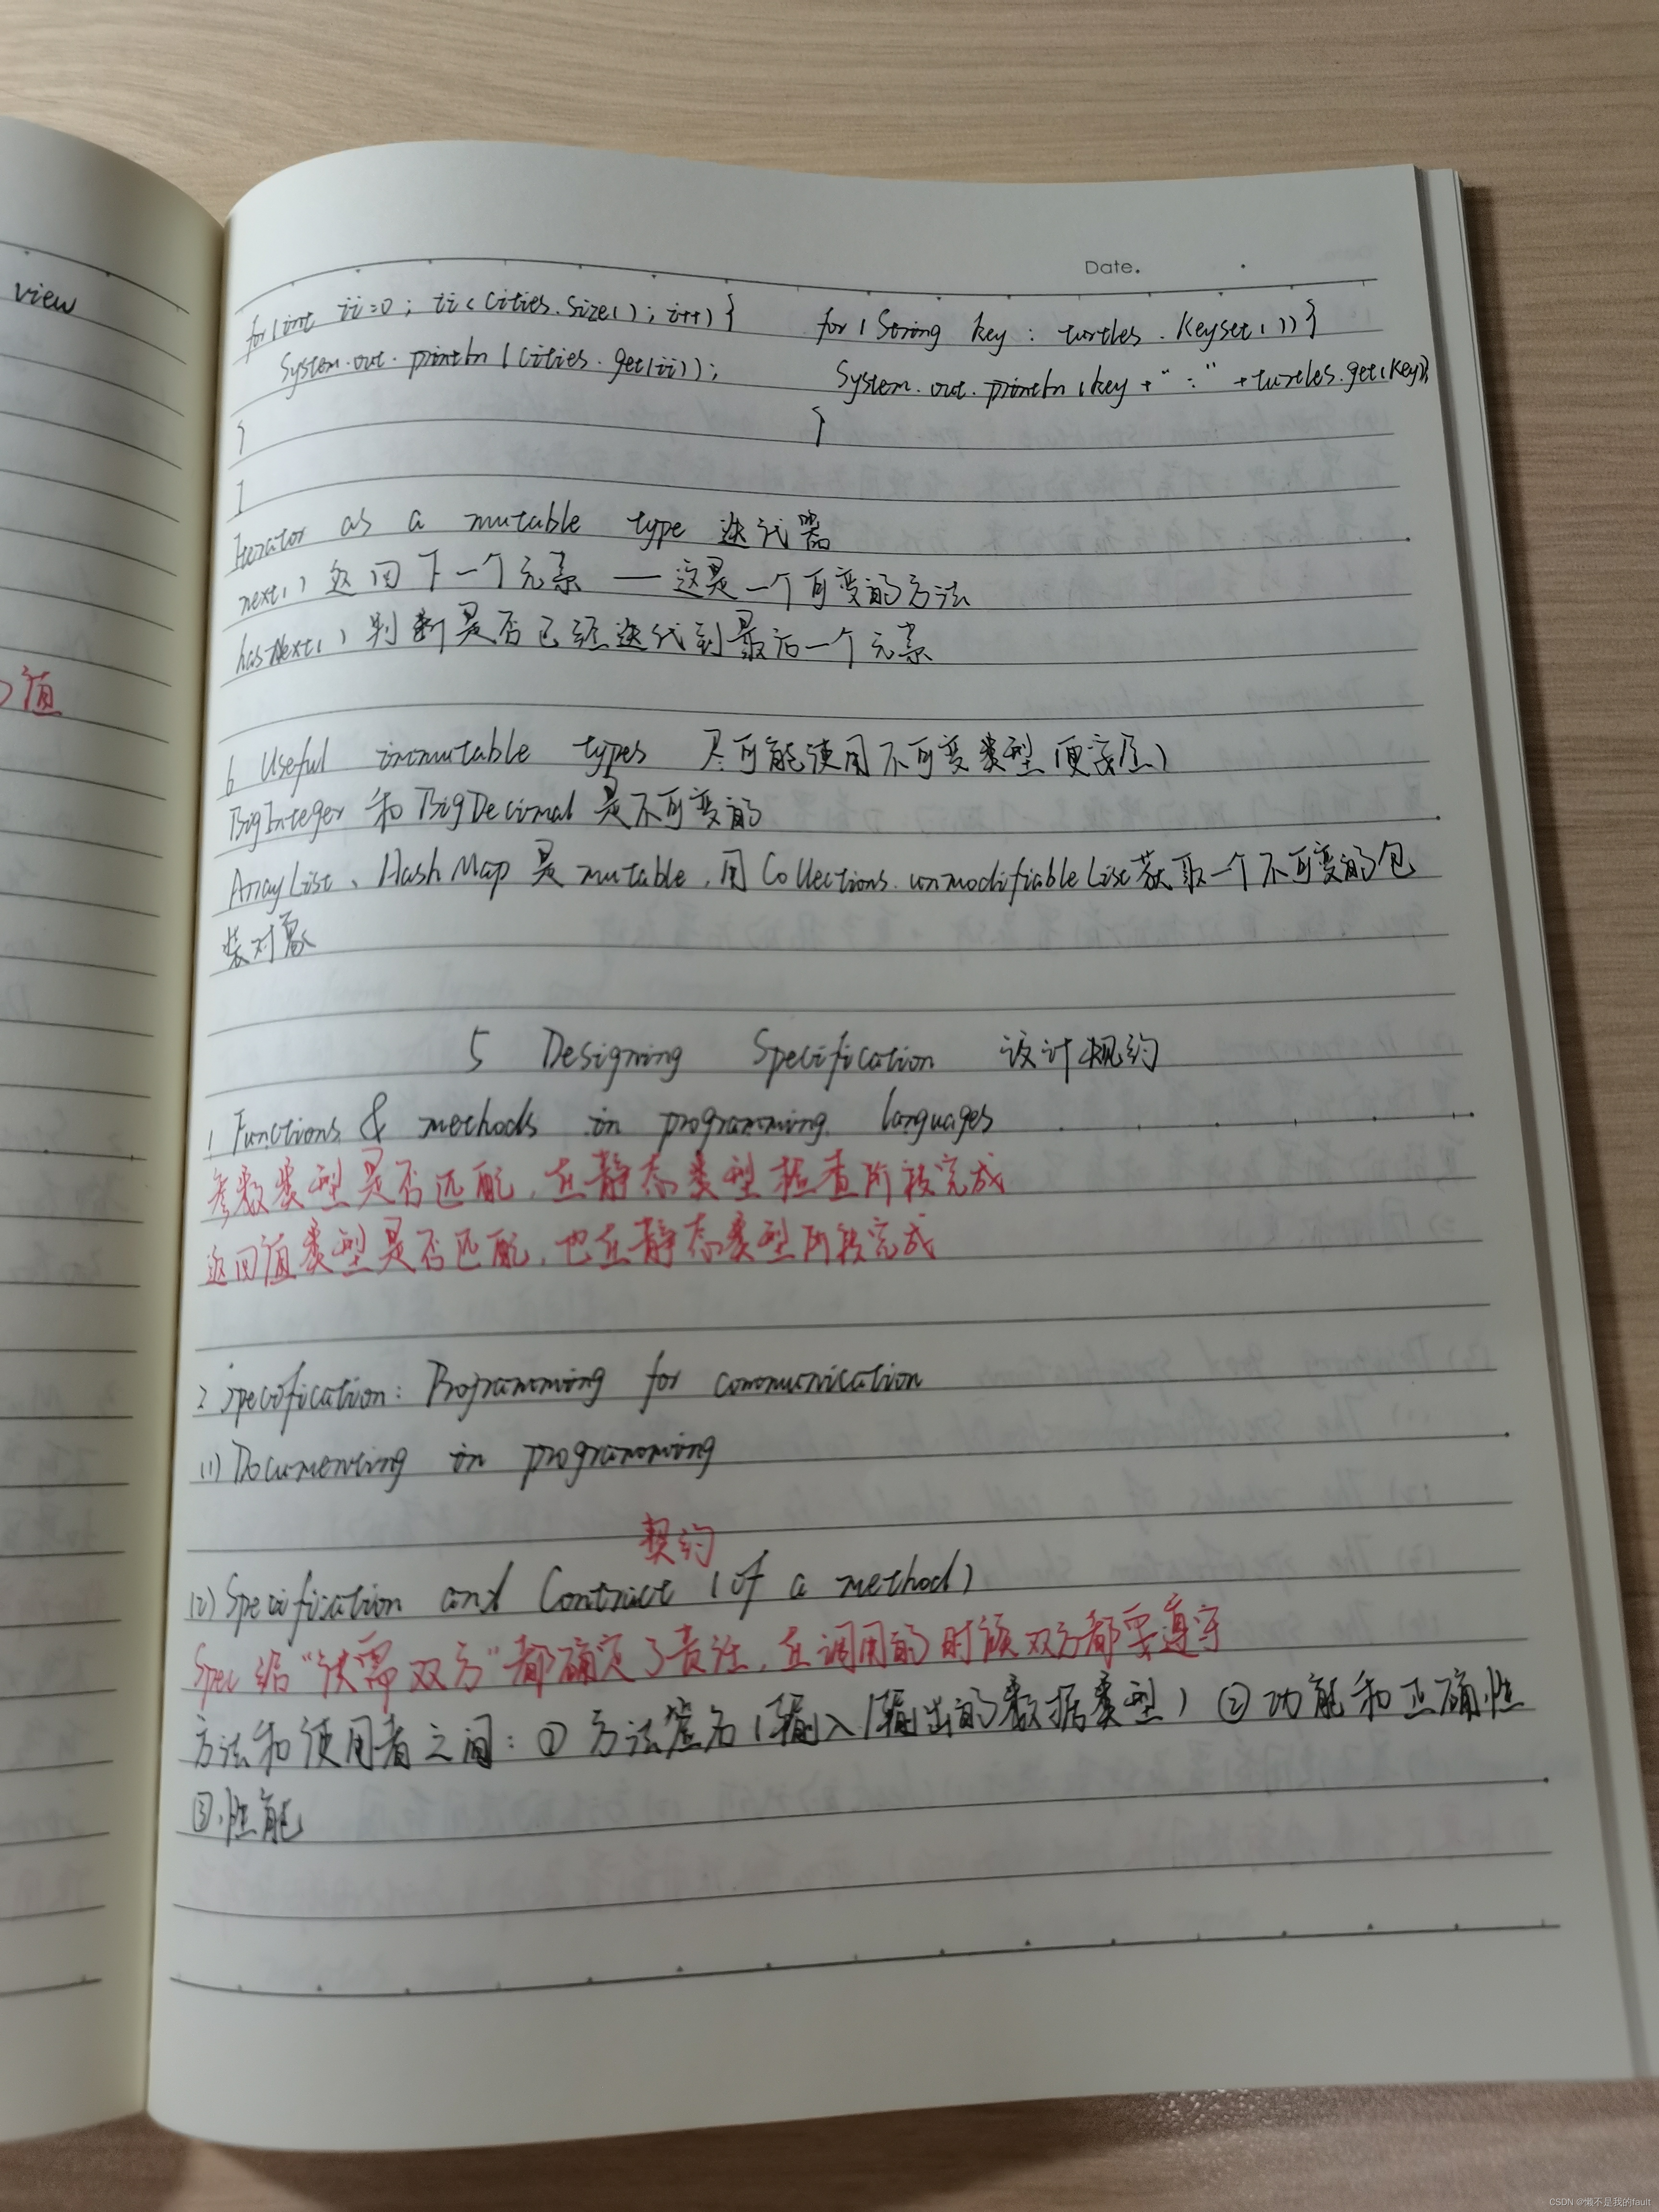 view
值
Date.
for(int ii=0; ii<cities.size(); i++){ for(String key: turtles.keyset()){
System.out.println(cities.get(ii)); System.out.println(key+":"+turtles.get(key));
} }
Iterator as a mutable type 迭代器
next() 返回下一个元素 — 这是一个可变的方法
hasNext() 判断是否已经迭代到最后一个元素
6 Useful immutable types 尽可能使用不可变类型(更安全)
BigInteger 和 BigDecimal 是不可变的
ArrayList、HashMap 是 mutable,用 Collections.unmodifiableList 获取一个不可变的包
装对象
5 Designing Specification 设计规约
1 Functions & methods in programming languages
参数类型是否匹配,在静态类型检查阶段完成
返回值类型是否匹配,也在静态类型阶段完成
2 Specification: Programming for communication
(1) Documenting in programming
契约
(2) Specification and Contract (of a method)
Spec 给“供需双方”都确定了责任,在调用的时候双方都要遵守
方法和使用者之间:① 方法签名(输入/输出的数据类型) ② 功能和正确性
③ 性能
CSDN @懒不是我的fault